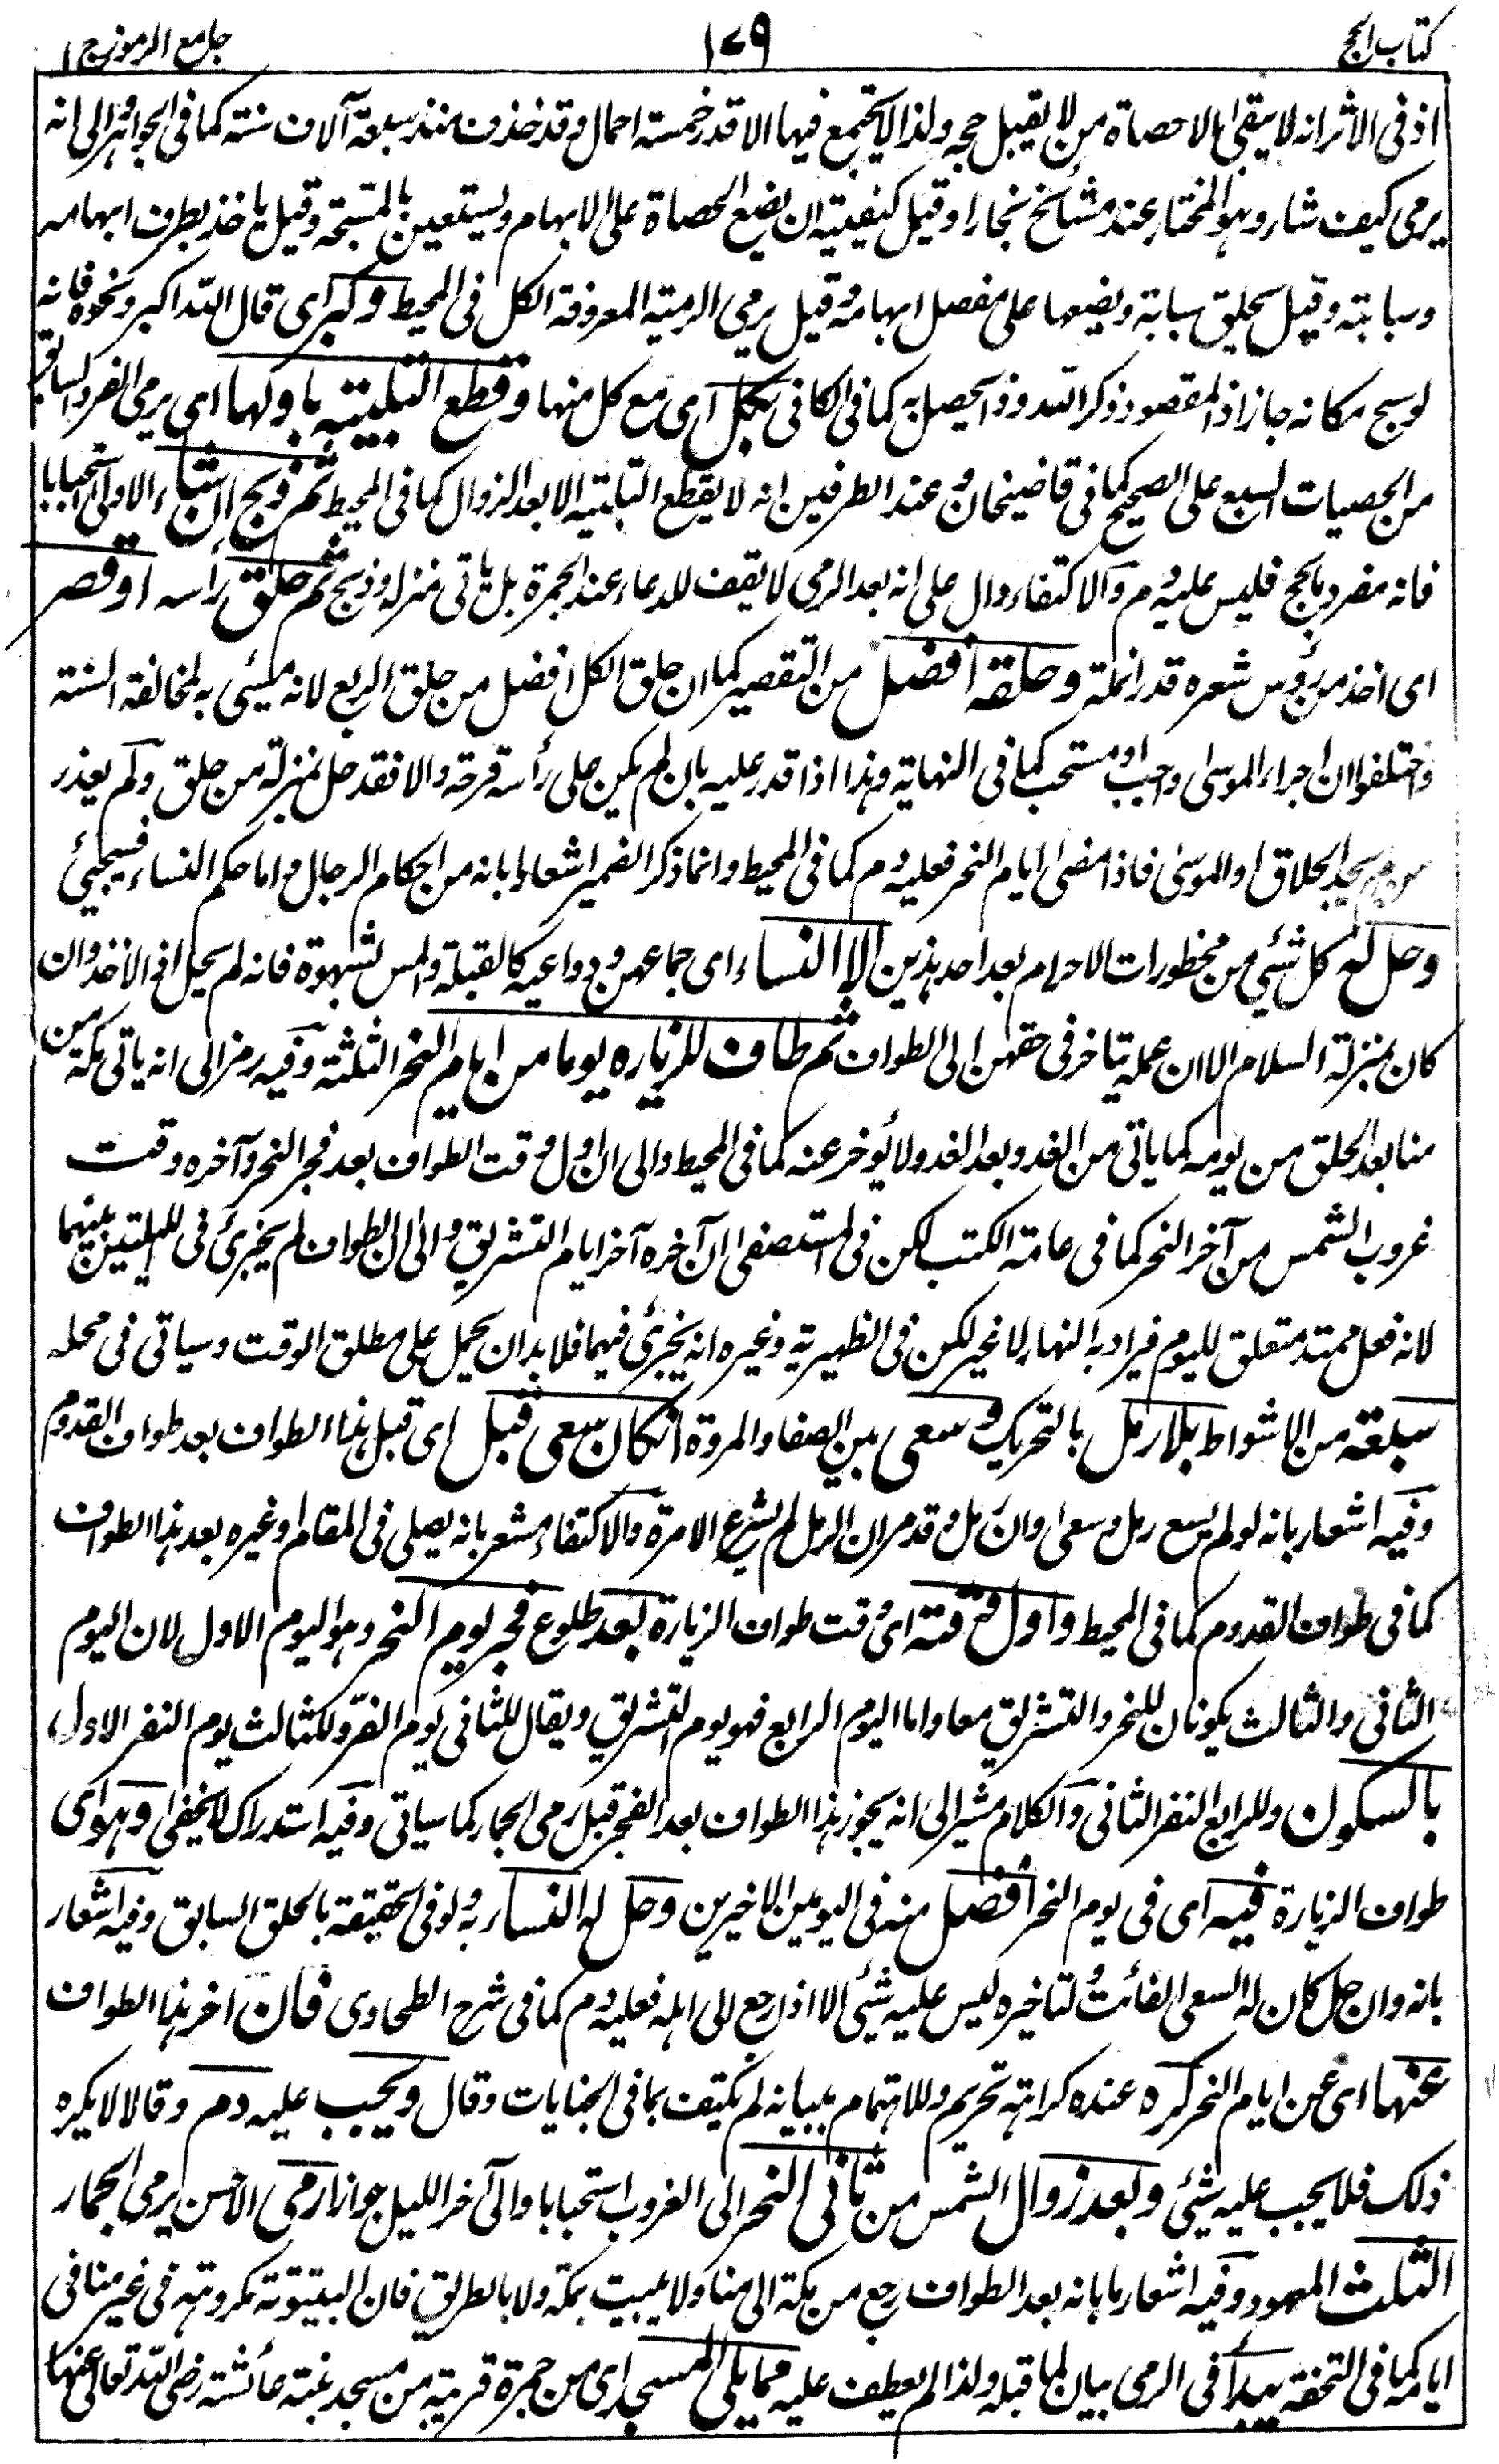 كتاب الحج ١٧٩ جامع الرموز ج ١
اذ فى الاثر انه لا يبقى الا حصاة من لا يقبل حجه ولذا لا يجتمع فيها الا قدر خمسة احمال وقد خذف منذ سبعة آلاف سنة كما فى الجواهر الى انه
يرمى كيف شاء وهو المختار عند مشائخ بخارا وقيل كيفيته ان يضع الحصاة على الابهام ويستعين بالمسبحة وقيل ياخذ بطرف ابهامه
وسبابته وقيل يحلق سبابة ويضعها على مفصل ابهامه وقيل يرمى الرمية المعروفة الكل فى المحيط وكبر اى قال الله اكبر ونحوه فانه
لو سبح مكانه جاز اذ المقصود ذكر الله وذا يحصل به كما فى الكافى بكل اى مع كل منها وقطع التلبية باولها اى يرمى الفرد السابق
من الحصيات السبع على الصحيح كما فى قاضيخان وعند الطرفين انه لا يقطع التلبية الا بعد الزوال كما فى المحيط ثم ذبح ان شاء الاولى استحبابا
فانه مفرد بالحج فليس عليه دم والاكتفاء دال على انه بعد الرمى لا يقف للدعاء عند الجمرة بل ياتى منزله وذبح ثم حلق رأسه او قصر
اى اخذ من رؤس شعره قدر انملة وحلقه افضل من التقصير كما ان حلق الكل افضل من حلق الربع لانه مسيئ به لمخالفة السنة
واختلفوا ان اجراء الموسى واجب او مستحب كما فى النهاية وهذا اذا قدر عليه بان لم يكن على رأسه قرحة والا فقد حل بمنزلة من حلق ولم يعذر
من لم يجد الحلاق او الموسى فاذا مضى ايام النحر فعليه دم كما فى المحيط وانما ذكر الضمير اشعارا بانه من احكام الرجال واما حكم النساء فسيجيئ
وحل له كل شئ من محظورات الاحرام بعد احد هذين الا النساء اى جماعهن ودواعيه كالقبلة والمس بشهوة فانه لم يحل اذ الاخذ وان
كان بمنزلة السلام الا ان عمله يتاخر فى حقهن الى الطواف ثم طاف للزيارة يوما من ايام النحر الثلثة وفيه رمز الى انه ياتى مكة من
منا بعد الحلق من يومه كما ياتى من الغد وبعد الغد ولا يؤخر عنه كما فى المحيط والى ان اول وقت الطواف بعد فجر النحر وآخره وقت
غروب الشمس من آخر النحر كما فى عامة الكتب لكن فى المستصفى ان آخره آخر ايام التشريق والى ان الطواف لم يجزئ فى الليلتين بينهما
لانه فعل ممتد متعلق لليوم فيراد به النهار لا غير لكن فى الظهيرية وغيره انه يجزئ فيهما فلا بد ان يحمل على مطلق الوقت وسياتى فى محله
سبعة من الاشواط بلا رمل بالتحريك وسعى بين الصفا والمروة ان كان سعى قبل اى قبل هذا الطواف بعد طواف القدوم
وفيه اشعار بانه لو لم يسع رمل وسعى وان رمل وقد مر ان الرمل لم يشرع الا مرة والاكتفاء مشعر بانه يصلى فى المقام او غيره بعد هذا الطواف
كما فى طواف القدوم كما فى المحيط واول وقته اى وقت طواف الزيارة بعد طلوع فجر يوم النحر وهو اليوم الاول لان اليوم
الثانى والثالث يكونان للنحر والتشريق معا واما اليوم الرابع فهو يوم التشريق ويقال للثانى يوم القر وللثالث يوم النفر الاول
بالسكون وللرابع النفر الثانى والكلام مشير الى انه يجوز هذا الطواف بعد الفجر قبل رمى الجمار كما سياتى وفيه استدراك لا يخفى وهو اى
طواف الزيارة فيه اى فى يوم النحر افضل منه فى اليومين الاخيرين وحل له النساء به ولو فى الحقيقة بالحلق السابق وفيه اشعار
بانه وان حل كان له السعى الفائت ولتاخيره ليس عليه شئ الا اذا رجع الى اهله فعليه دم كما فى شرح الطحاوى فان اخر هذا الطواف
عنها اى عن ايام النحر كره عنده كراهة تحريم وللاهتمام ببيانه لم يكتف بما فى الجنايات وقال ويجب عليه دم وقالا لا يكره
ذلك فلا يجب عليه شئ وبعد زوال الشمس من ثانى النحر الى الغروب استحبابا والى آخر الليل جوازا رمى الاحسن يرمى الجمار
الثلث المعهود وفيه اشعار ما بانه بعد الطواف رجع من مكة الى منا ولا يبيت بمكة ولا بالطريق فان البيتوتة مكروهة فى غير منا فى
ايامه كما فى التحفة يبدأ فى الرمى بيان لما قبله ولذا لم يعطف عليه مما يلى المسجد اى من جمرة قريبة من مسجد بنته عائشة رضى الله تعالى عنها